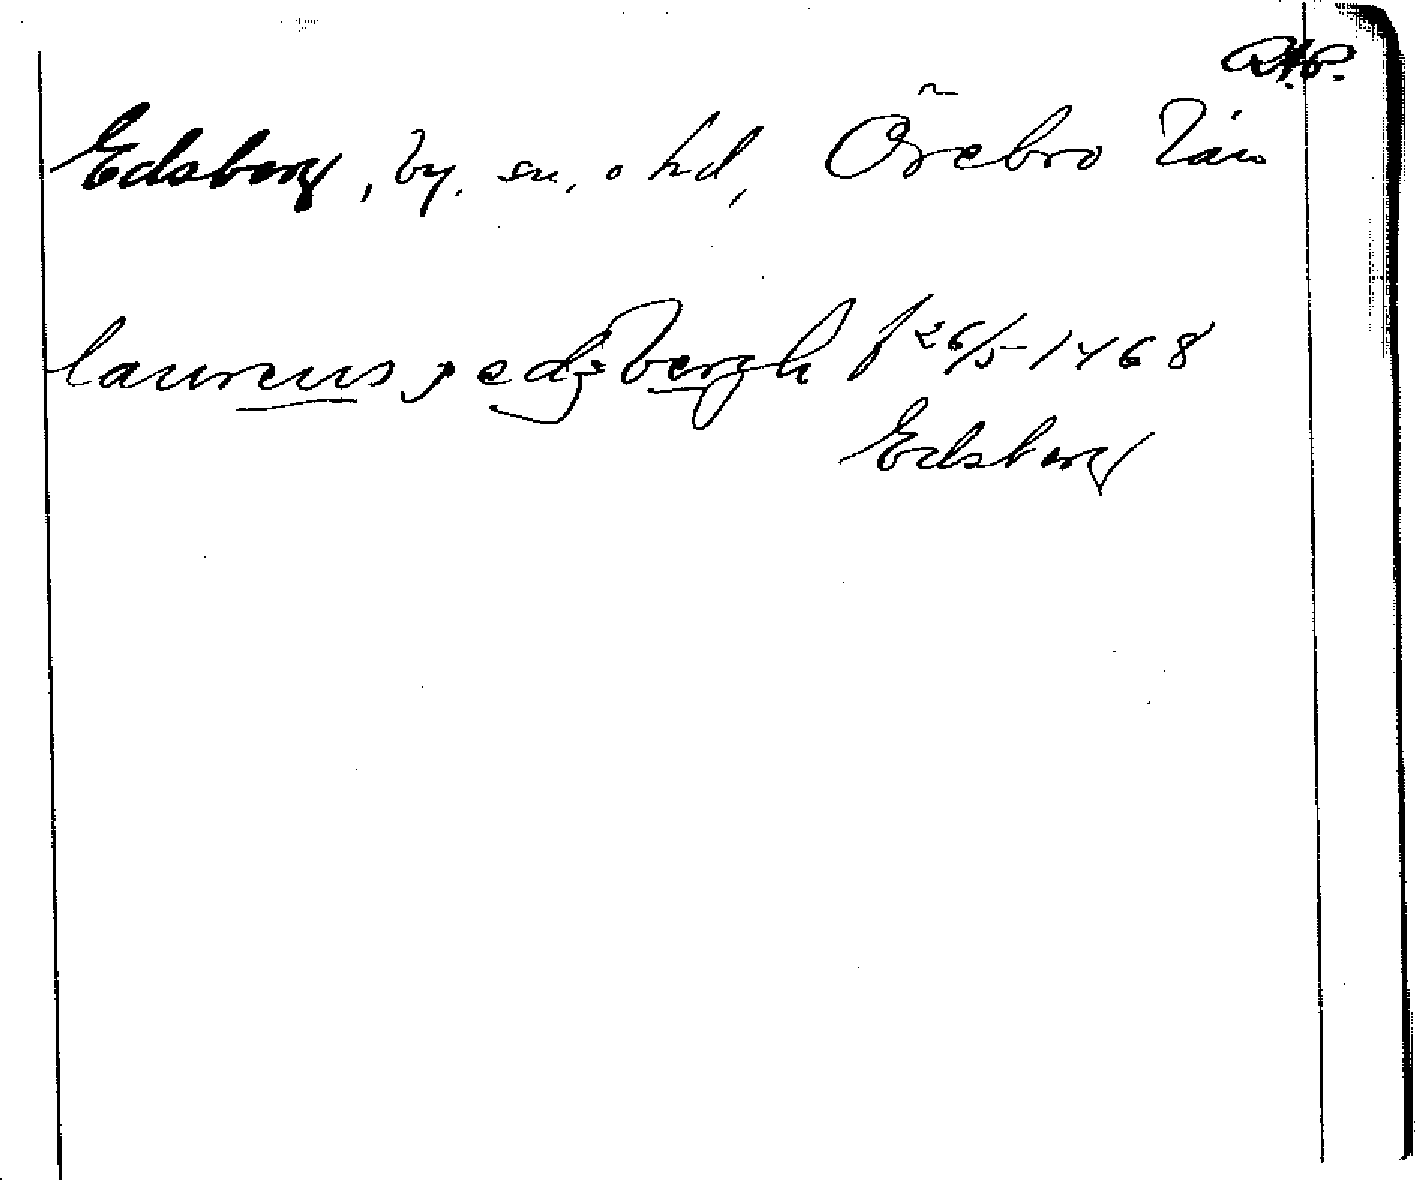 RAP.
Edsberg, by, sn, o hd, Örebro län
laurens j edzbergh f 26/5 1468
Edsberg